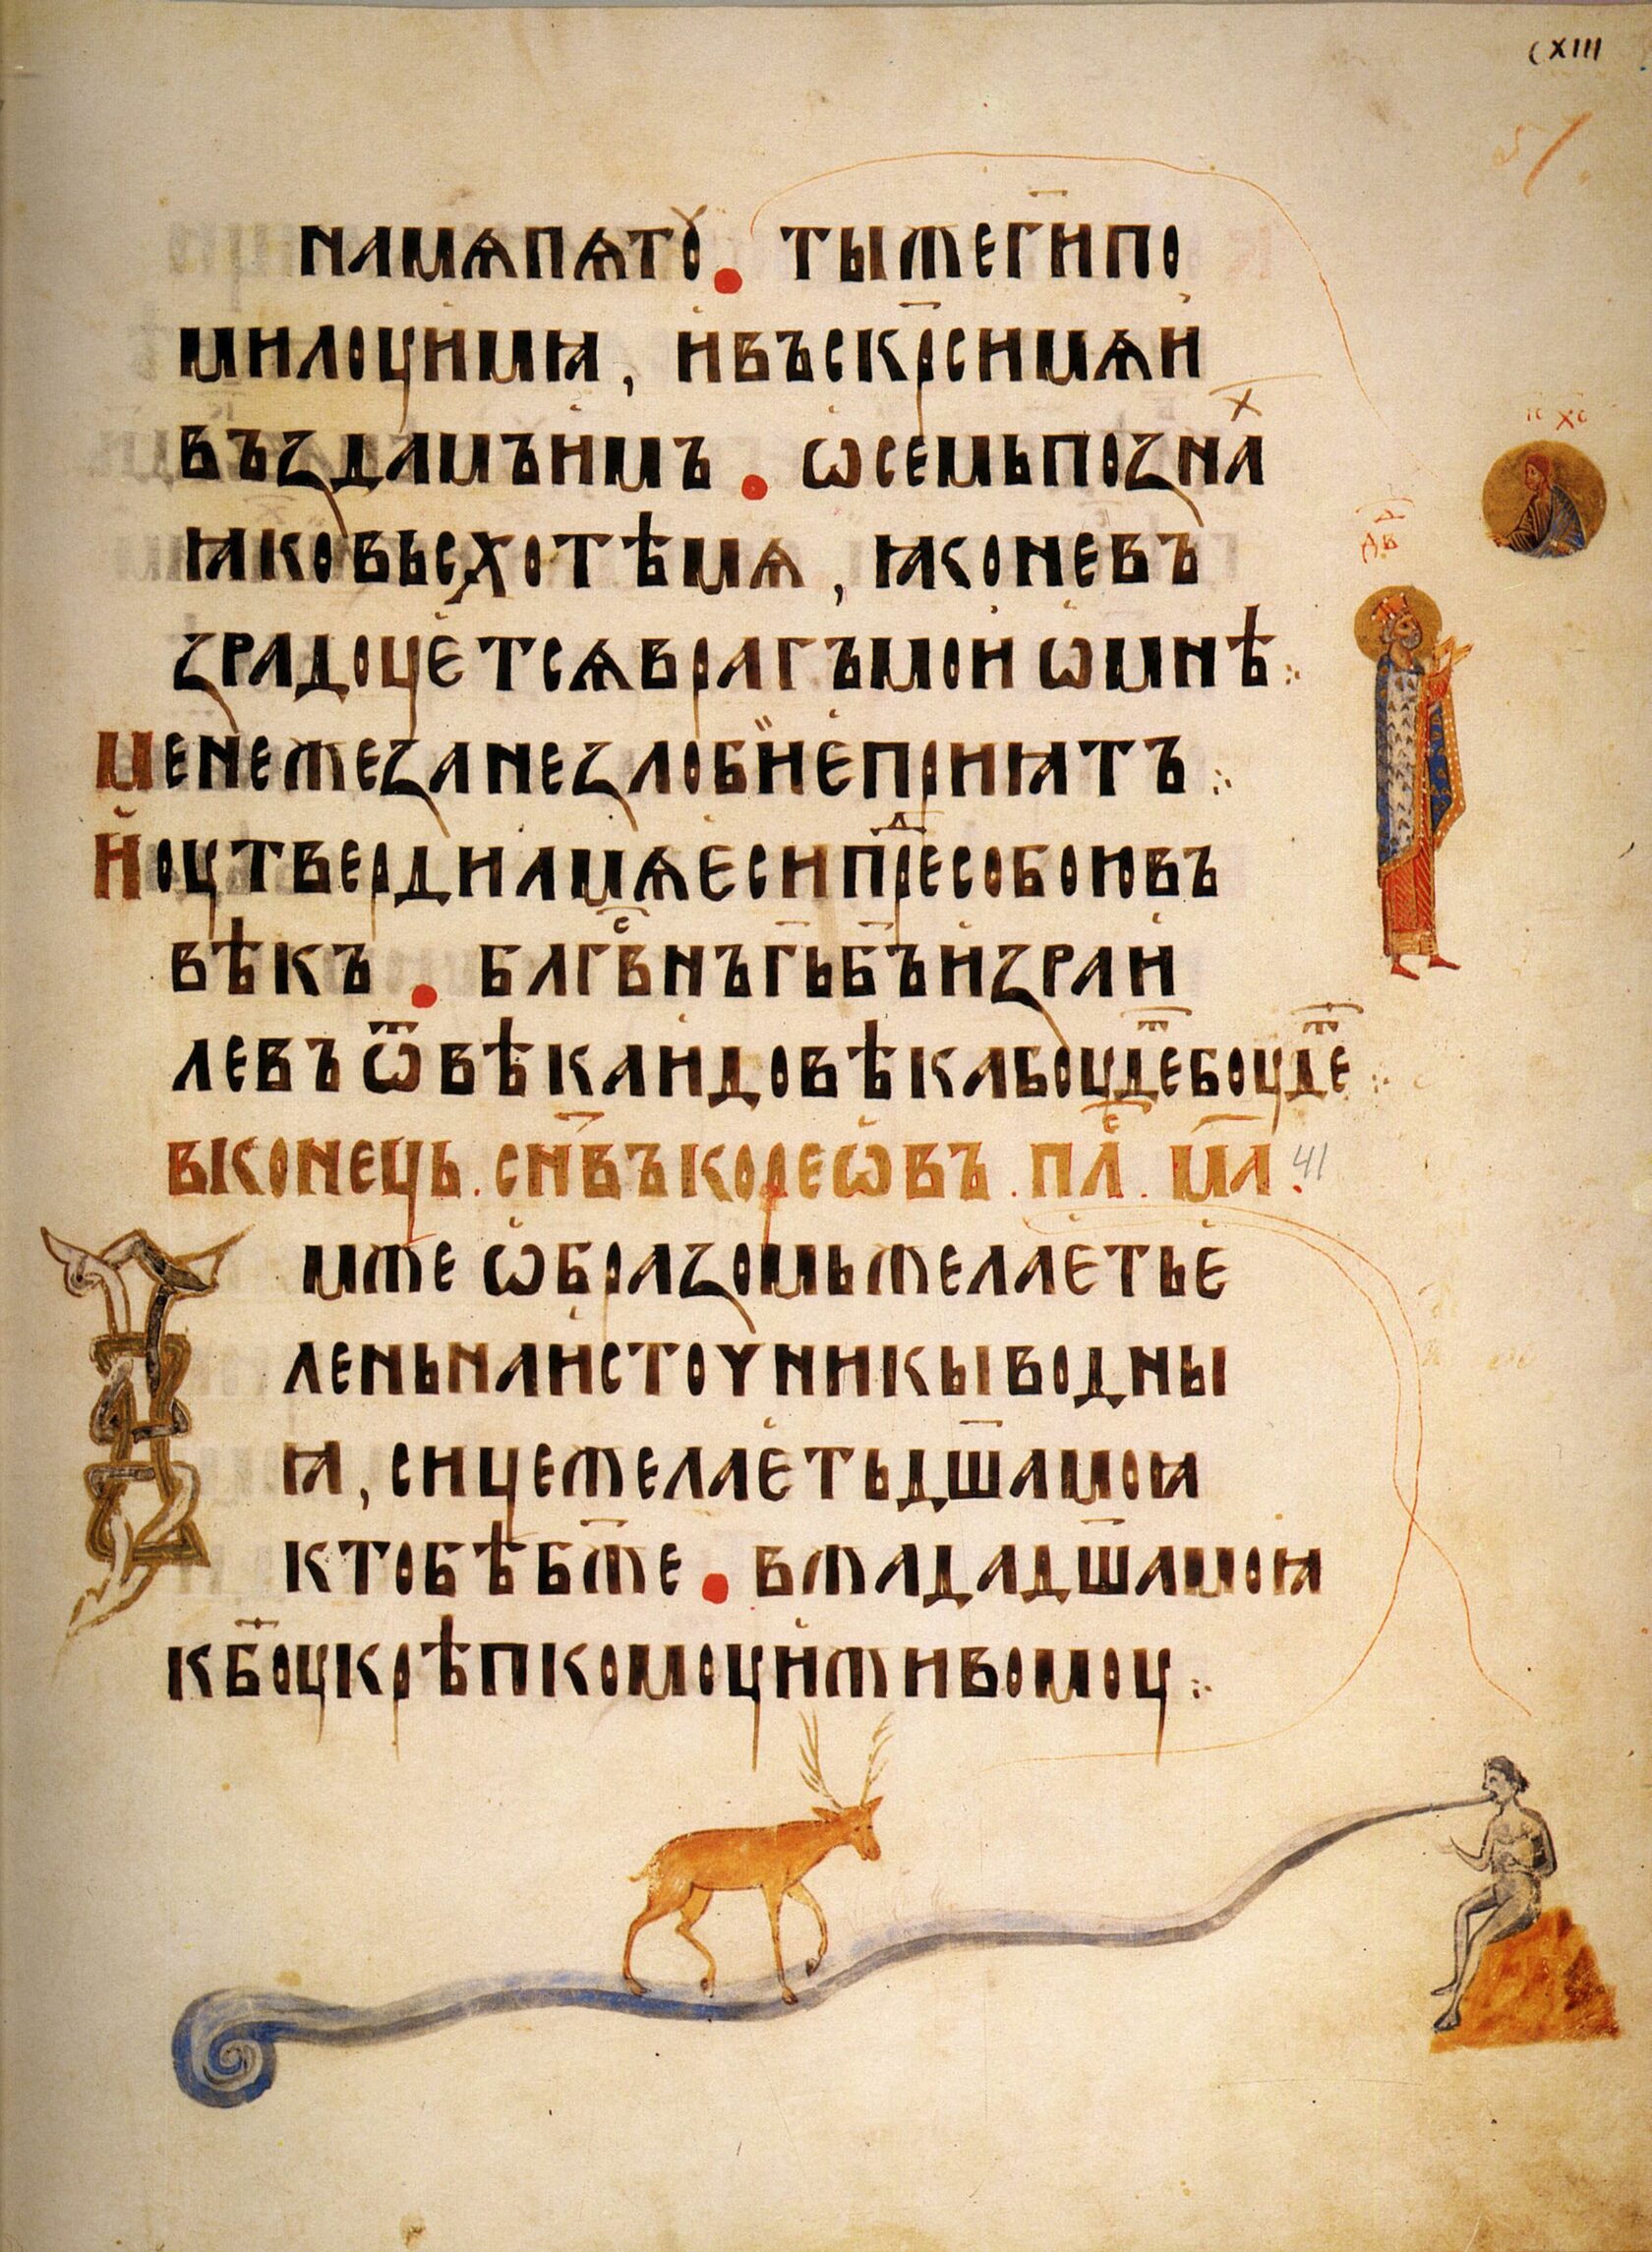 СХІІІ
57.
на мѧ пѧтѹ. ты же г҃и по
милоуи мꙗ, и въскр҃си мѧ и
въздамъ имъ. ѡ семь познаⷯ
ꙗко въсхотѣ мѧ, ꙗко не въ
зрадоуетсѧ врагъ мои ѡ мнѣ
мене же за незлобие приꙗтъ
и оутвердилъ мѧ еси преⷣ собою въ
вѣкъ. блгⷭвнъ г҃ь б҃ъ изра҃и
левъ ѿ вѣка и до вѣка боудеⷮ боудеⷮ
в конець. сн҃въ кореѡвъ. плⷭ. м҃а. 41
І҃С Х҃С
ДВⷣ
Имже ѡбразомь желаеть е
лень на источникы водны
ꙗ, сице желаеть дш҃а моꙗ
к тобѣ б҃же. вжада дш҃а моꙗ
к б҃оу крѣпкомоу живомоу